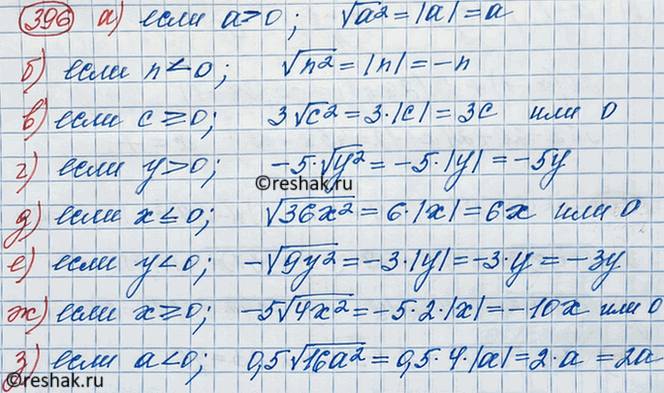 396 а) если a>0; √a² = |a| = a
б) если n<0; √n² = |n| = -n
в) если c≥0; 3√c² = 3·|c| = 3c или 0
г) если y>0; -5·√y² = -5·|y| = -5y
©reshak.ru
д) если x≤0; √36x² = 6·|x| = 6x или 0
е) если y<0; -√9y² = -3·|y| = -3·y = -3y
ж) если x≥0; -5√4x² = -5·2·|x| = -10x или 0
з) если a<0; 0,5√16a² = 0,5·4·|a| = 2·a = 2a
©reshak.ru